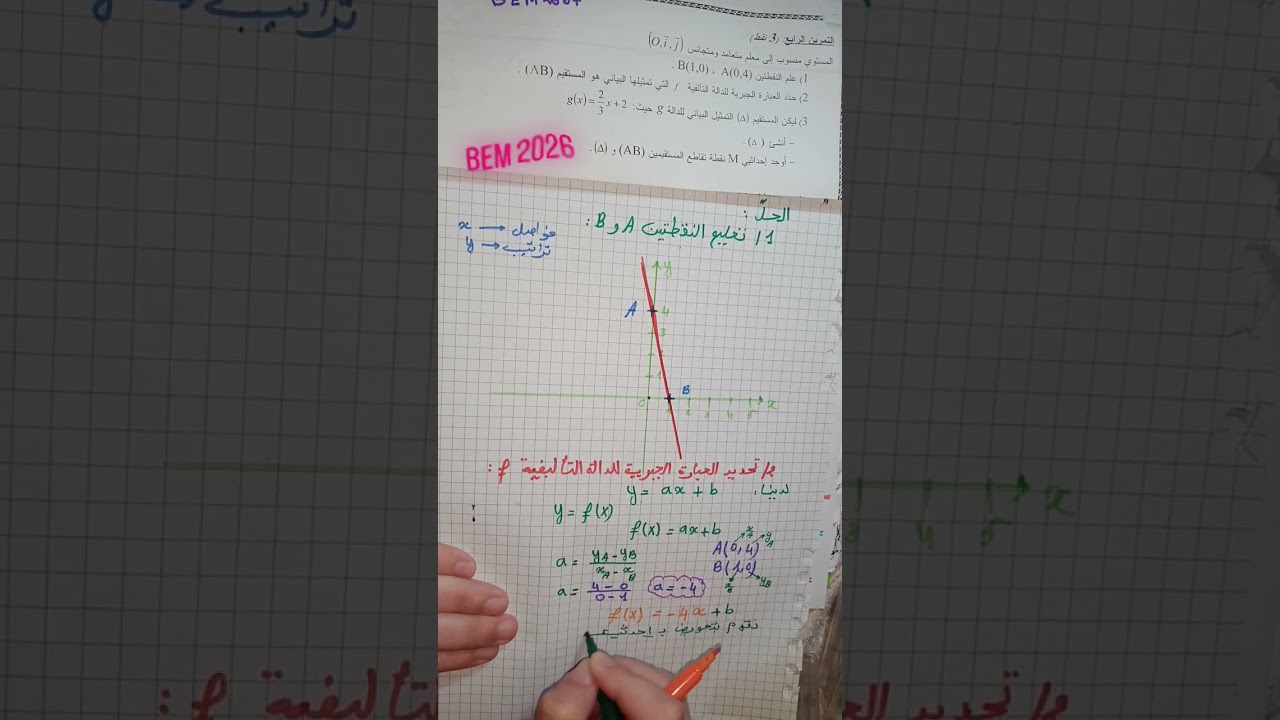 التمرين الرابع: (3 نقط)
المستوي منسوب إلى معلم متعامد ومتجانس (O, i, j)
1) علم النقطتين A(0,4) ، B(1,0) .
2) حدّد العبارة الجبرية للدالة التآلفية f التي تمثيلها البياني هو المستقيم (AB) .
3) ليكن المستقيم (Δ) التمثيل البياني للدالة g حيث: g(x) = 2/3 x + 2
- أنشئ (Δ) .
- أوجد إحداثيي M نقطة تقاطع المستقيمين (AB) و (Δ).
BEM 2026
الحلّ :
1/ تعليم النقطتين A و B :
x → فواصل
y → تراتيب
y
A 4
3
1
B
0 2 3 4 5 x
2/ تحديد العبارة الجبرية للدالة التآليفية f :
لدينا: y = ax + b
y = f(x)
f(x) = ax + b
a = yA - yB / xA - xB
A(0,4)
B(1,0)
a = 4 - 0 / 0 - 1
a = -4
f(x) = -4x + b
نقوم بتعويض بـ إحداثي